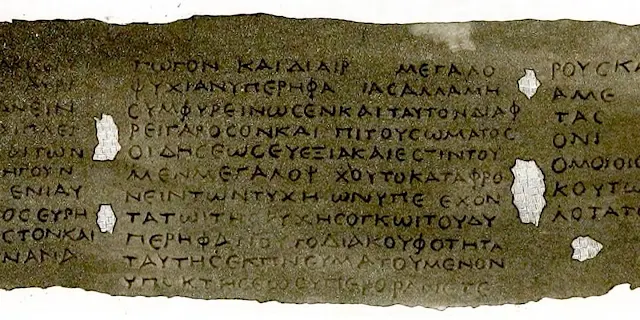 ΔΝΕΙΝ
ΔΙΤΩΝ
ΗΓΟΥΝ
ΕΝΙΑΥ
ΟϹΕΥΡΗ
ϹΤΟΝΚΑΙ
ΝΑΝΔ
ΓΩΓΟΝ ΚΑΙΔΙΑΙΡ ΜΕΓΑΛΟ
ΨΥΧΙΑΝΥΠΕΡΗΦΑ ΙΑϹΑΛΛΑΜΗ
ϹΥΜΦΥΡΕΙΝΩϹΕΝΚΑΙΤΑΥΤΟΝΔΙΑΦ
ΡΕΙΓΑΡΟϹΟΝΚΑΙ ΠΙΤΟΥϹΩΜΑΤΟϹ
ΟΙΔΗϹΕΩϹΕΥΕΞΙΑΚΑΙΕϹΤΙΝΤΟΥ
ΜΕΝΜΕΓΑΛΟΨ ΧΟΥΤΟΚΑΤΑΦΡΟ
ΝΕΙΝΤΩΝΤΥΧΗ ΩΝΥΠΕ ΕΧΟΝ
ΤΑΤΩΙΤΗϹ ΥΧΗϹΟΓΚΩΙΤΟΥΔΥ
ΠΕΡΗΦΑ ΤΟΔΙΑΚΟΥΦΟΤΗΤΑ
ΤΑΥΤΗϹΕΚΠΝΕΥΜΑΤΟΥΜΕΝΟΝ
ΥΠΟΚΤΗϹΕΩϹΥΠΕΡΟΡΑΝ
ΡΟΥϹΚΑ
ΑΜΕ
ΤΑϹ
ΟΝΙ
ΟΜΟΙΟΙ
ΚΟΥΤΩ
ΛΟΤΑΠ